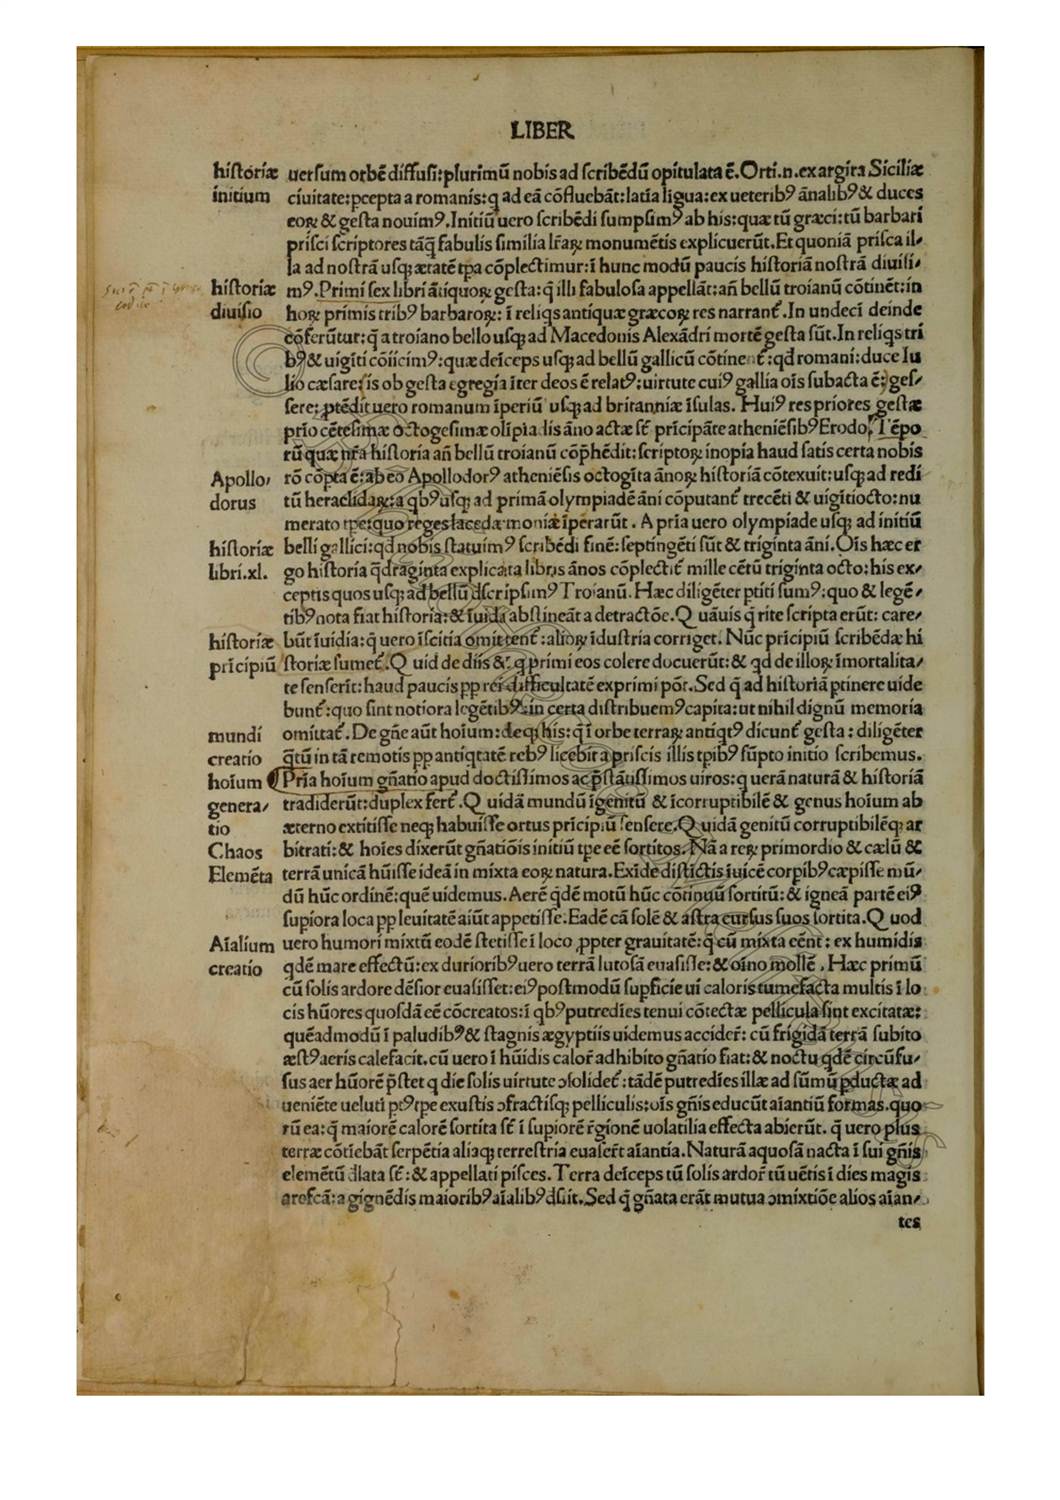 LIBER
historiæ uersum orbē diffusi: plurimū nobis ad scribēdū opitulata ē. Orti .n. ex argira Siciliæ
initium ciuitate: pcepta a romanis: q ad eā cōfluebāt: latīa līgua: ex ueterib⁹ ānalib⁹ & duces
eoꝝ & gesta nouim⁹. Initiū uero scribēdi sumpsim⁹ ab his: quæ tū græci: tū barbari
prisci scriptores tāꝗ fabulis similia lr̄aꝝ monumētis explicuerūt. Et quoniā prisca il⸗
la ad nostrā usqꝫ ætatē tpa cōplectimur: ī hunc modū paucis historiā nostrā diuisi⸗
historiæ m⁹. Primi sex libri ātiquoꝝ gesta: q̄ illi fabulosa appellāt: an̄ bellū troianū cōtinēt: in
diuisio hoꝝ primis trib⁹ barbaroꝝ: ī reliqs antiquæ græcoꝝ res narrant᷑. In undeci deinde
cōferūtur: q̄ a troiano bello usqꝫ ad Macedonis Alexādri mortē gesta sūt. In reliqs tri
b⁹ & uigīti cōiicim⁹: quæ deīceps usqꝫ ad bellū gallicū cōtinent᷑: qd romani: duce Iu
lio cæsare: is ob gesta egregia īter deos ē relat⁹: uirtute cui⁹ gallia oīs subacta ē: ges⸗
sere: ꝓtēdit uero romanum īperiū usqꝫ ad britanniæ īsulas. Hui⁹ res priores gestæ
prīo cētesimæ octogesimæ olīpiadis āno actæ sēt prīcipāte atheniēsib⁹ Erodo. Tēpo
rū quæ nr̄a historia an̄ bellū troianū cōp̄hēdit: scriptoꝝ inopia haud satis certa nobis
Apollo⸗ rō cōpta ē: ab eo Apollodor⁹ atheniēsis octogīta ānoꝝ historiā cōtexuit: usqꝫ ad redi
dorus tū heraclidaꝝ: a qb⁹ usqꝫ ad primā olympiadē āni cōputant᷑ trecēti & uigītiocto: nu
merato tpe: quo reges lacedæmoniæ īperarūt. A prīa uero olympiade usqꝫ ad initiū
historiæ belli gallici: qd nobis statuim⁹ scribēdi finē: septingēti sūt & triginta āni. Oīs hæc er
libri .xl. go historia q̄draginta explicata libris ānos cōplectit᷑ mille cētū triginta octo: his ex⸗
ceptis quos usqꝫ ad bellū dscripsim⁹ Troianū. Hæc diligēter ptiti sum⁹: quo & legē⸗
tib⁹ nota fiat historia: & īuidi abstineāt a detractōe. Q uāuis q̄ rite scripta erūt: care⸗
historiæ būt īuidia: q̄ uero īscitia omittent᷑: alioꝝ īdustria corriget. Nūc prīcipiū scribēdæ hi
prīcipiū storiæ sumet᷑. Q uid de diis & q primi eos colere docuerūt: & qd de illoꝝ īmortalita⸗
te senserīt: haud paucis pp rei difficultatē exprimi pōt. Sed q̄ ad historiā ptinere uide
bunt᷑: quo sint notiora legētib⁹: in certa distribuem⁹ capita: ut nihil dignū memoria
mundi omittat᷑. De gn̄e aūt hoīum: deqꝫ his: q̄ ī orbe terraꝝ antiqt⁹ dicunt᷑ gesta: diligēter
creatio q̄tū in tā remotis pp antiqtatē reb⁹ licebit a priscis illis tpib⁹ sūpto initio scribemus.
hoīum ¶ Prīa hoīum gn̄atio apud doctissimos ac p̄stātissimos uiros: q uerā naturā & historiā
genera⸗ tradiderūt: duplex fert᷑. Q uidā mundū īgenitū & īcorruptibilē & genus hoīum ab
tio æterno extitisse neqꝫ habuisse ortus prīcipiū sensere. Q uidā genitū corruptibilēqꝫ ar
Chaos bitrati: & hoīes dixerūt gn̄atiōīs initiū tpe eē sortitos. Nā a reꝝ primordio & cælū &
Elemēta terrā unicā hūisse ideā in mixta eoꝝ natura. Exīde distīctis īuicē corpib⁹ cæpisse mū⸗
dū hūc ordinē: quē uidemus. Aerē q̄dē motū hūc cōtinuū sortitū: & igneā partē ei⁹
supiora loca pp leuitatē aiūt appetisse. Eadē cā solē & astra cursus suos sortita. Q uod
Aīalium uero humori mixtū eodē stetisse ī loco ꝓpter grauitatē: q̄ cū mixta eēnt: ex humidis
creatio qdē mare effectū: ex duriorib⁹ uero terrā lutosā euasisse: & oīno mollē. Hæc primū
cū solis ardore dēsior euasisset: ei⁹ postmodū supficie ui caloris tumefacta multis ī lo
cis hūores quosdā eē cōcreatos: ī qb⁹ putredīes tenui cōtectæ pellicula sint excitatæ:
quēadmodū ī paludib⁹ & stagnis ægyptiis uidemus accider̄: cū frigidā terrā subito
æst⁹ aeris calefacit. cū uero ī hūidis calor̄ adhibito gn̄atio fiat: & noctu qdē circūfu⸗
sus aer hūorē p̄stet q die solis uirtute ↄsolidet᷑: tādē putredīes illæ ad sūmū ꝓductæ ad
ueniēte ueluti pt⁹ tpe exustis ↄfractisqꝫ pelliculis: oīs gn̄is educūt aīantiū formas. quo
rū ea: q̄ maiorē calorē sortita sēt ī supiorē r̄gionē uolatilia effecta abierūt. q̄ uero plus
terræ cōtīebāt serpētia aliaqꝫ terrestria euaser̄t aīantia. Naturā aquosā nacta ī sui gn̄is
elemētū dlata sēt: & appellati pisces. Terra deīceps tū solis ardor̄ tū uētis ī dies magis
arescā: a gignēdis maiorib⁹ aīalib⁹ dsiit. Sed q̄ gn̄ata erāt mutua ↄmixtiōe alios aīan⸗
tes